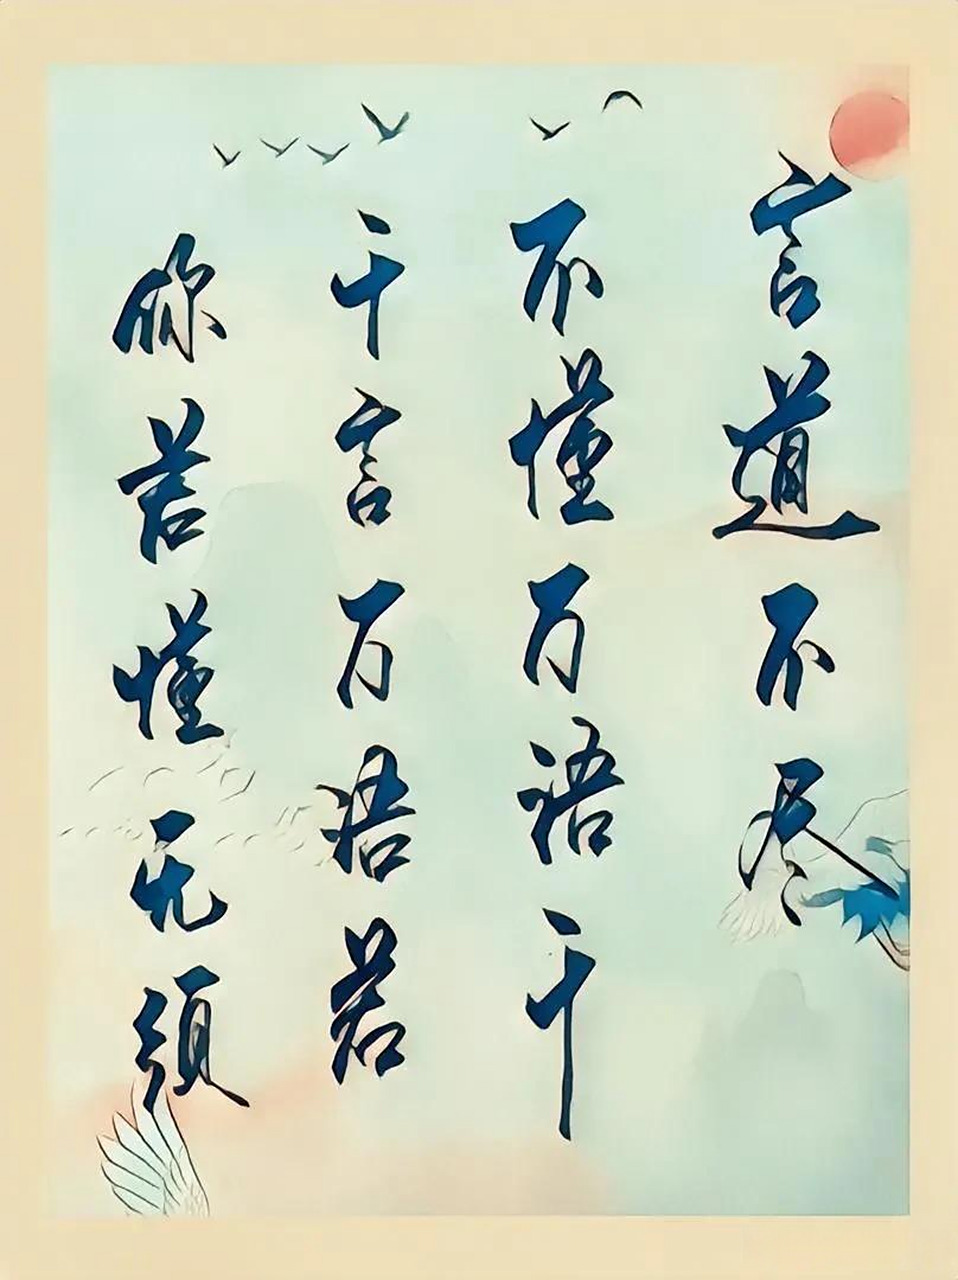 言道不尽
不懂万语千
千言万语若
你若懂无须